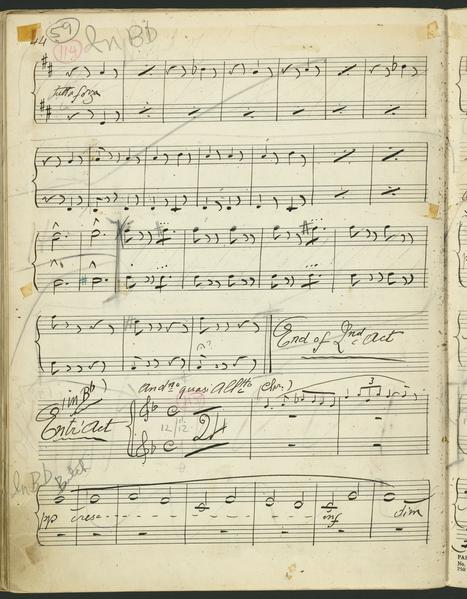 44
59
114
In Bb
tutta forza
End of 2nd Act
(in Bb)
Entr'Act
Andno quasi Alltto
(Clar.)
12
12
24
3
In Bb
pp cresc
mf
dim
PA
No.